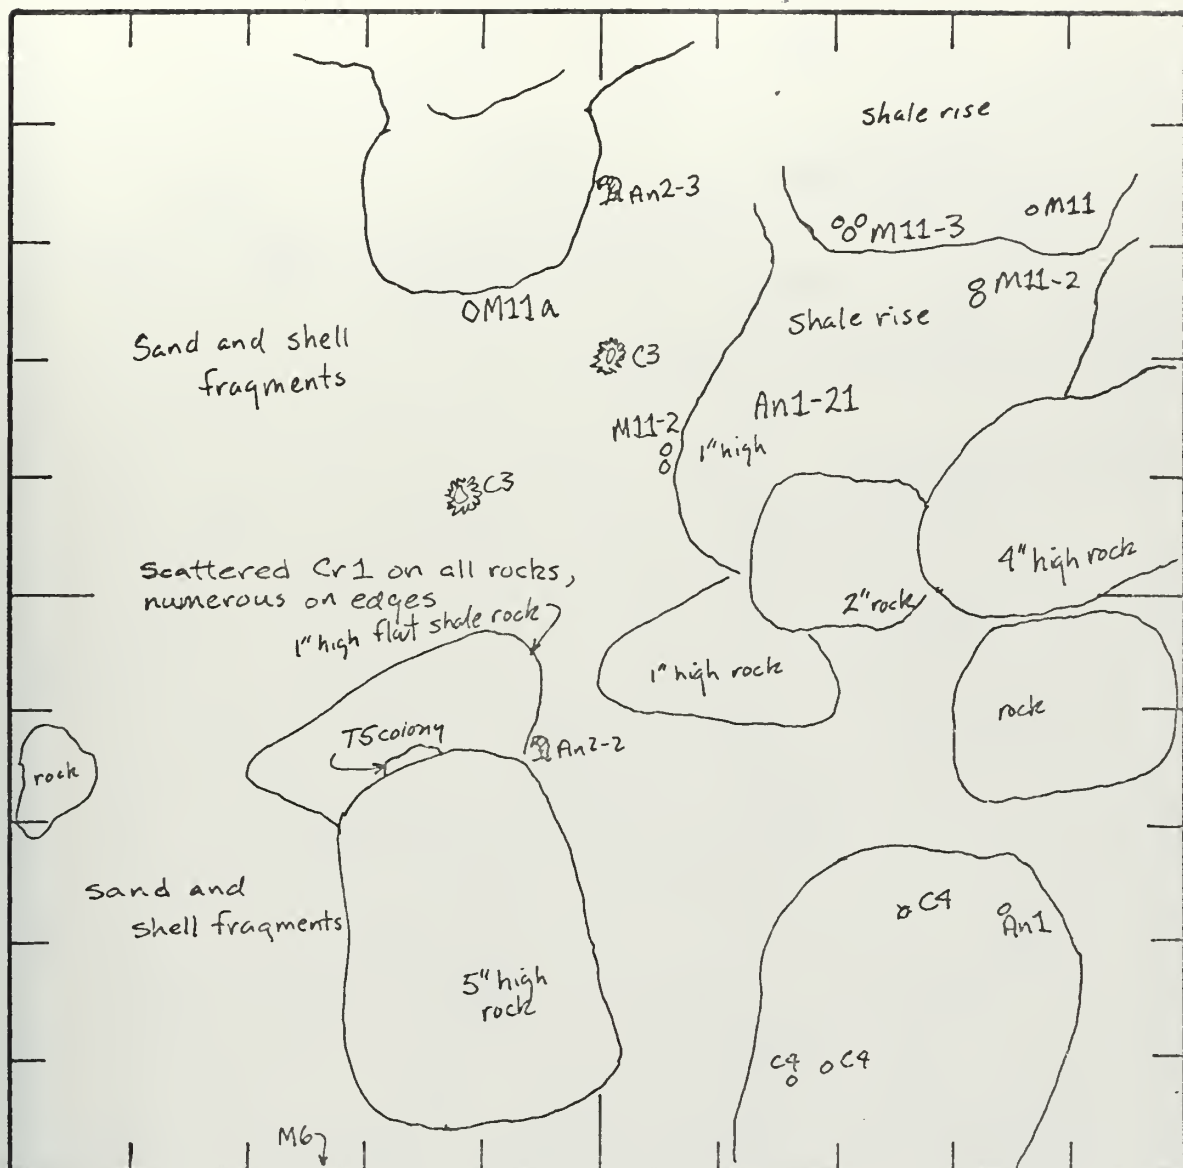 Shale rise
An2-3
M11-3
M11
M11-2
M11a
Shale rise
Sand and shell
fragments
C3
An1-21
M11-2
1" high
C3
4" high rock
Scattered Cr1 on all rocks,
numerous on edges
2" rock
1" high flat shale rock
1" high rock
rock
T5 colony
An2-2
rock
Sand and
shell fragments
C4
An1
5" high
rock
C4
C4
M6